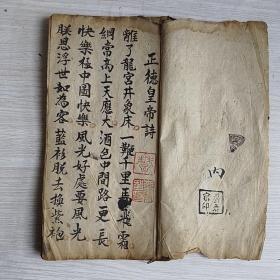 正德皇帝詩
離了龍宮井象床一鞭千里馬蹄霜
細當高上天應大酒色中間路更長
快樂極中圖快樂風光好處要風光
朕思浮世如為客藍衫脫去換紫袍
内